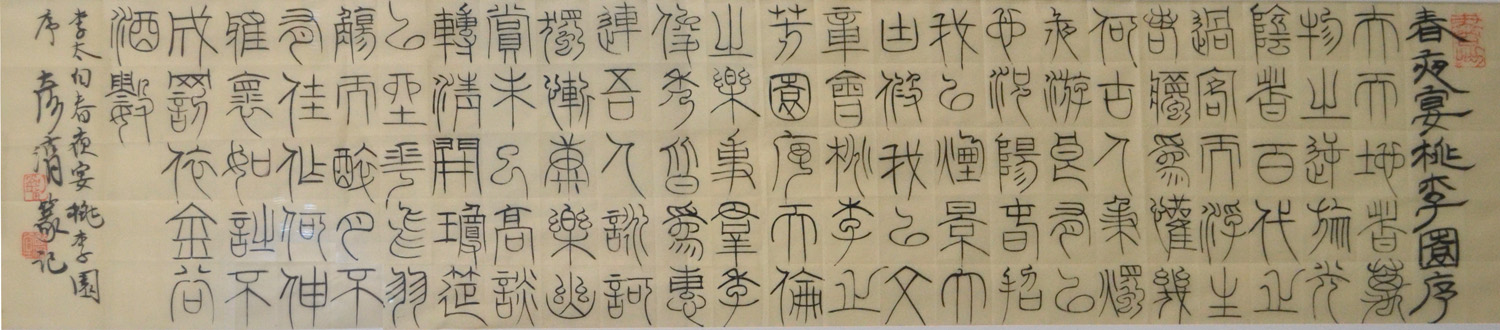 春夜宴桃李園序
夫天地者萬
物之逆旅光
陰者百代之
過客而浮生
若夢為歡幾
何古人秉燭
夜游良有以
也況陽春招
我以煙景大
由假我以文
章會桃李之
芳園序天倫
之樂事羣季
俊秀皆為惠
連吾人詠歌
獨慚康樂幽
賞未已高談
轉清開瓊筵
以坐花飛羽
觴而醉月不
有佳作何伸
雅懷如詩不
成罰依金谷
酒數
李太白春夜宴桃李園
序 彥涓篆記